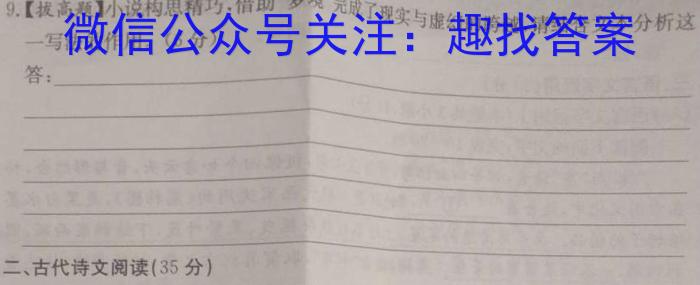 9.【拔高题】小说构思精巧,借助“梦境”完成了现实与虚幻的 分析这
微信公众号关注：趣找答案
一写 作用。( 分)
答:
二、古代诗文阅读(35分)